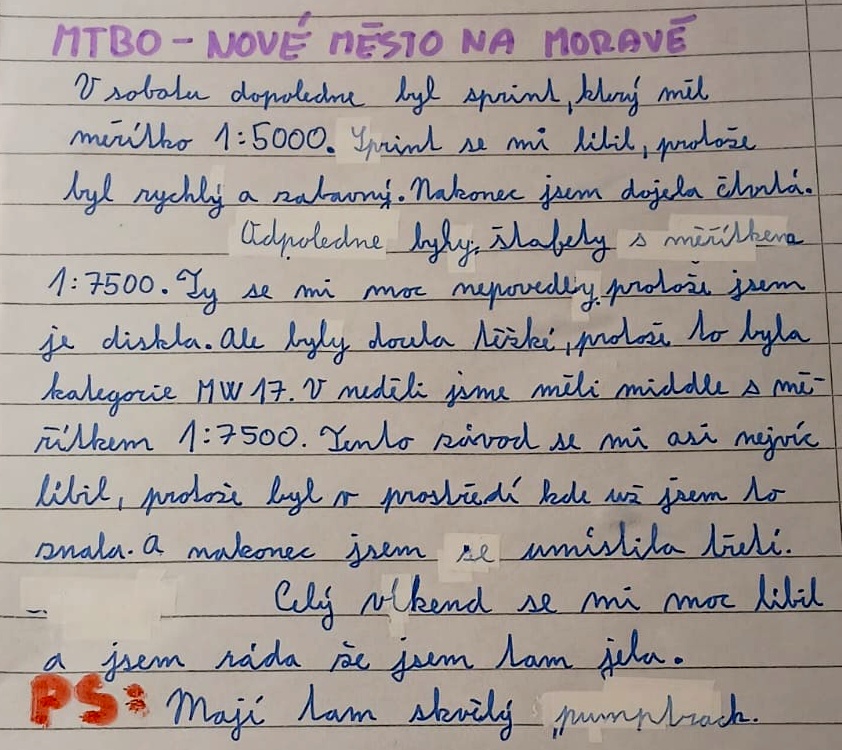 MTBO - NOVÉ MĚSTO NA MORAVĚ
V sobotu dopoledne byl sprint, který měl
měřítko 1:5000. Sprint se mi líbil, protože
byl rychlý a zábavný. Nakonec jsem dojela čtvrtá.
Odpoledne byly štafety s měřítkem
1:7500. Ty se mi moc nepovedly, protože jsem
je diskla. Ale byly docela těžké, protože to byla
kategorie MW 17. V neděli jsme měli middle s mě-
řítkem 1:7500. Tento závod se mi asi nejvíc
líbil, protože byl v prostředí kde už jsem to
znala. A nakonec jsem se umístila třetí.
Celý víkend se mi moc líbil
a jsem ráda že jsem tam jela.
PS: Mají tam skvělý pumptrack.